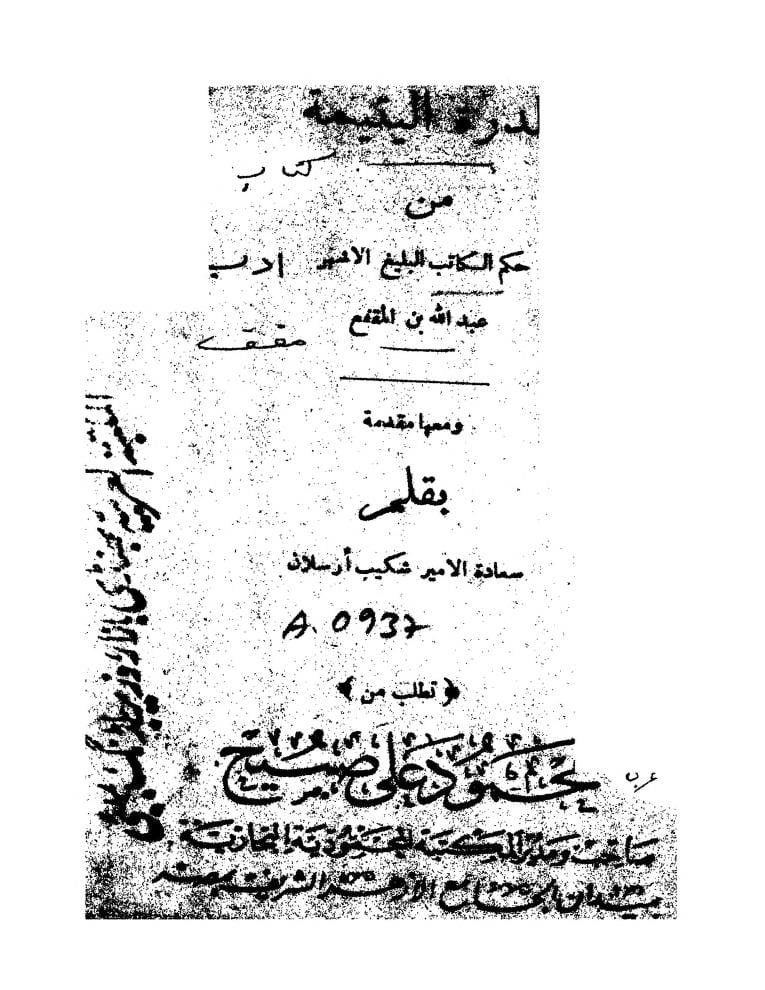 لدرة اليتيمة
كتاب
من
حكم الكاتب البليغ الاشهر
ادب
عبد الله بن المقفع
مقفع
ومعها مقدمة
بقلم
سعادة الامير شكيب أرسلان
A. 0937
﴿ تطلب من ﴾
محمود على صبيح
عرب
صاحب ومدير المكتبة المحمودية التجارية
بميدان الجامع الأزهر الشريف بمصر